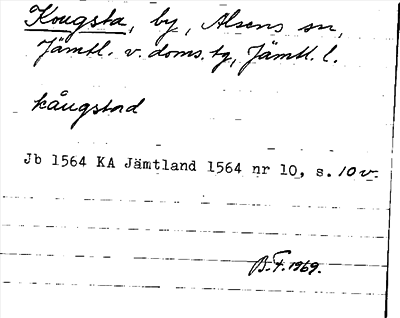 Kougsta, by, Alsens sn,
Jämtl. v. doms. tg, Jämtl. l.
kångstad
Jb 1564 KA Jämtland 1564 nr 10, s. 10 v.
B.F. 1969.